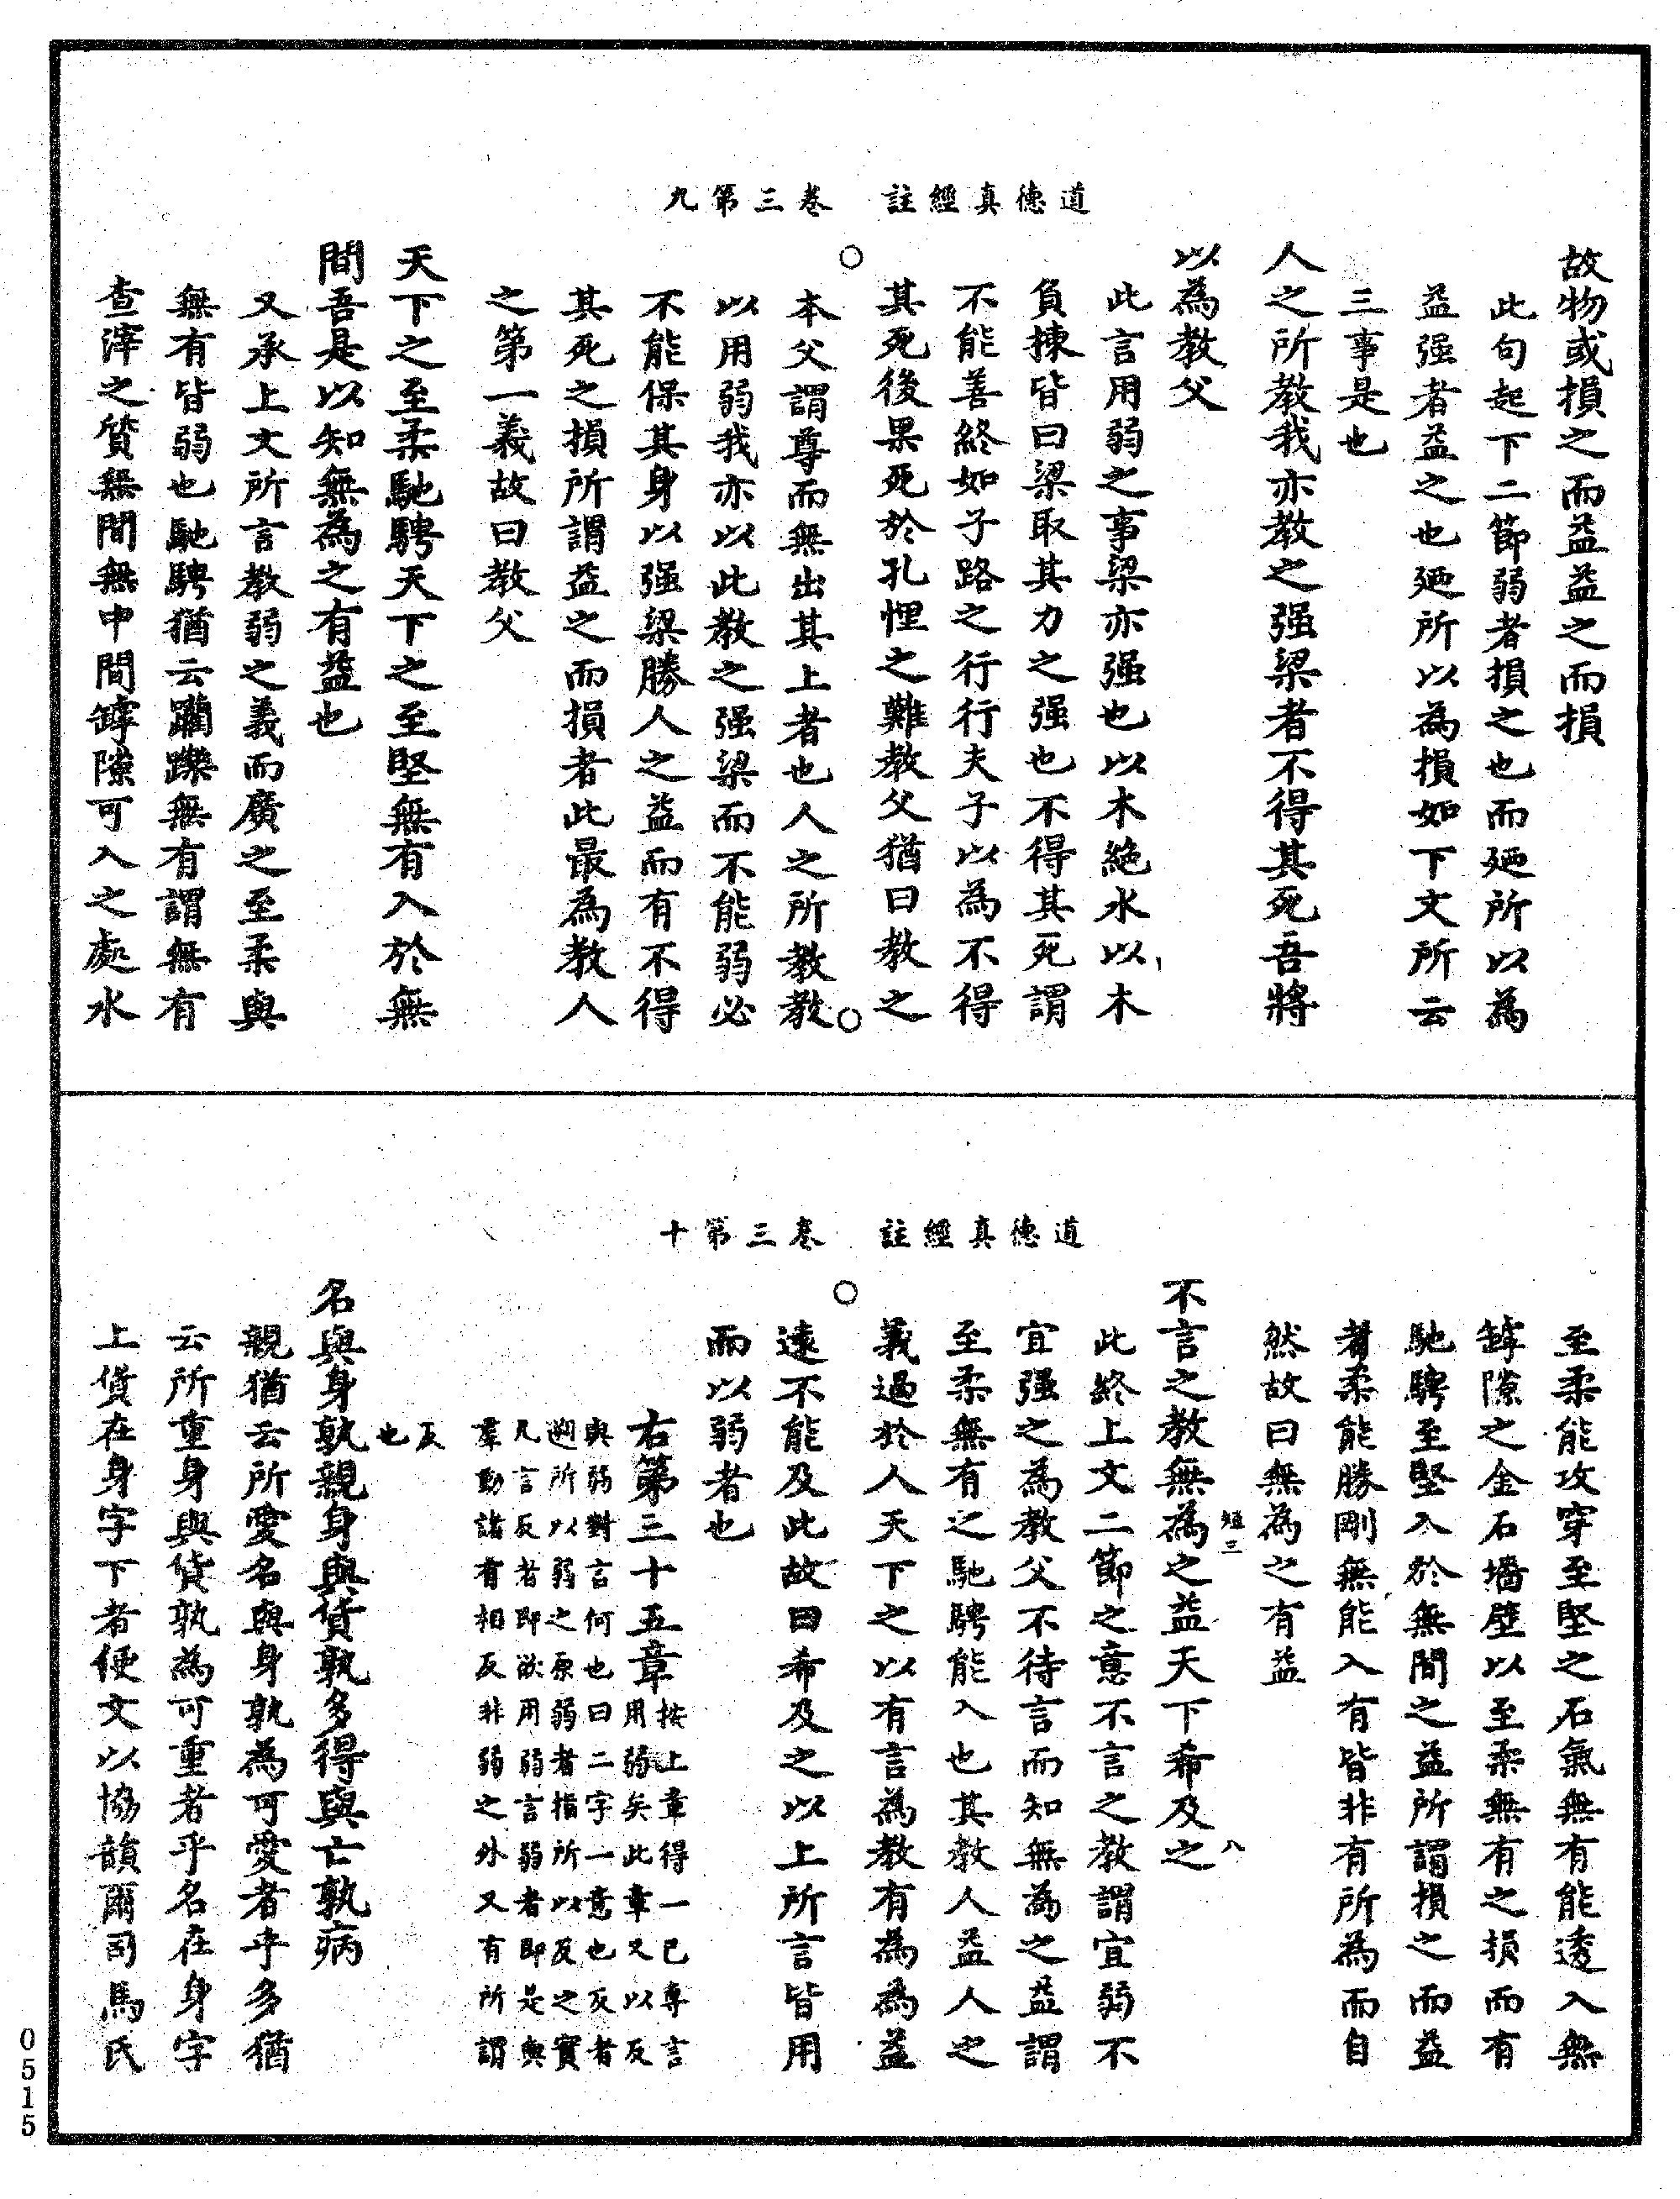 道德真經註　卷三第九
故物或損之而益益之而損
此句起下二節弱者損之也而廼所以為
益强者益之也廼所以為損如下文所云
三事是也
人之所教我亦教之强梁者不得其死吾將
以為教父
此言用弱之事梁亦强也以木絶水以木
負揀皆曰梁取其力之强也不得其死謂
不能善終如子路之行行夫子以為不得
其死後果死於孔悝之難教父猶曰教之
本父謂尊而無出其上者也人之所教教
以用弱我亦以此教之强梁而不能弱必
不能保其身以强梁勝人之益而有不得
其死之損所謂益之而損者此最為教人
之第一義故曰教父
天下之至柔馳騁天下之至堅無有入於無
間吾是以知無為之有益也
又承上文所言教弱之義而廣之至柔與
無有皆弱也馳騁猶云躪轢無有謂無有
查滓之質無間無中間罅隙可入之處水
道德真經註　卷三第十
至柔能攻穿至堅之石氣無有能透入無
罅隙之金石墻壁以至柔無有之損而有
馳騁至堅入於無間之益所謂損之而益
者柔能勝剛無能入有皆非有所為而自
然故曰無為之有益
短三　八
不言之教無為之益天下希及之
此終上文二節之意不言之教謂宜弱不
宜强之為教父不待言而知無為之益謂
至柔無有之馳騁能入也其教人益人之
義過於人天下之以有言為教有為為益
遠不能及此故曰希及之以上所言皆用
而以弱者也
右第三十五章按上章得一已專言
用弱矣此章又以反
與弱對言何也曰二字一意也反者
遡所以弱之原弱者指所以反之實
凡言反者即欲用弱言弱者即是與
羣動諸有相反非弱之外又有所謂
反
也
名與身孰親身與貨孰多得與亡孰病
親猶云所愛名與身孰為可愛者乎多猶
云所重身與貨孰為可重者乎名在身字
上貨在身字下者便文以協韻爾司馬氏
0515